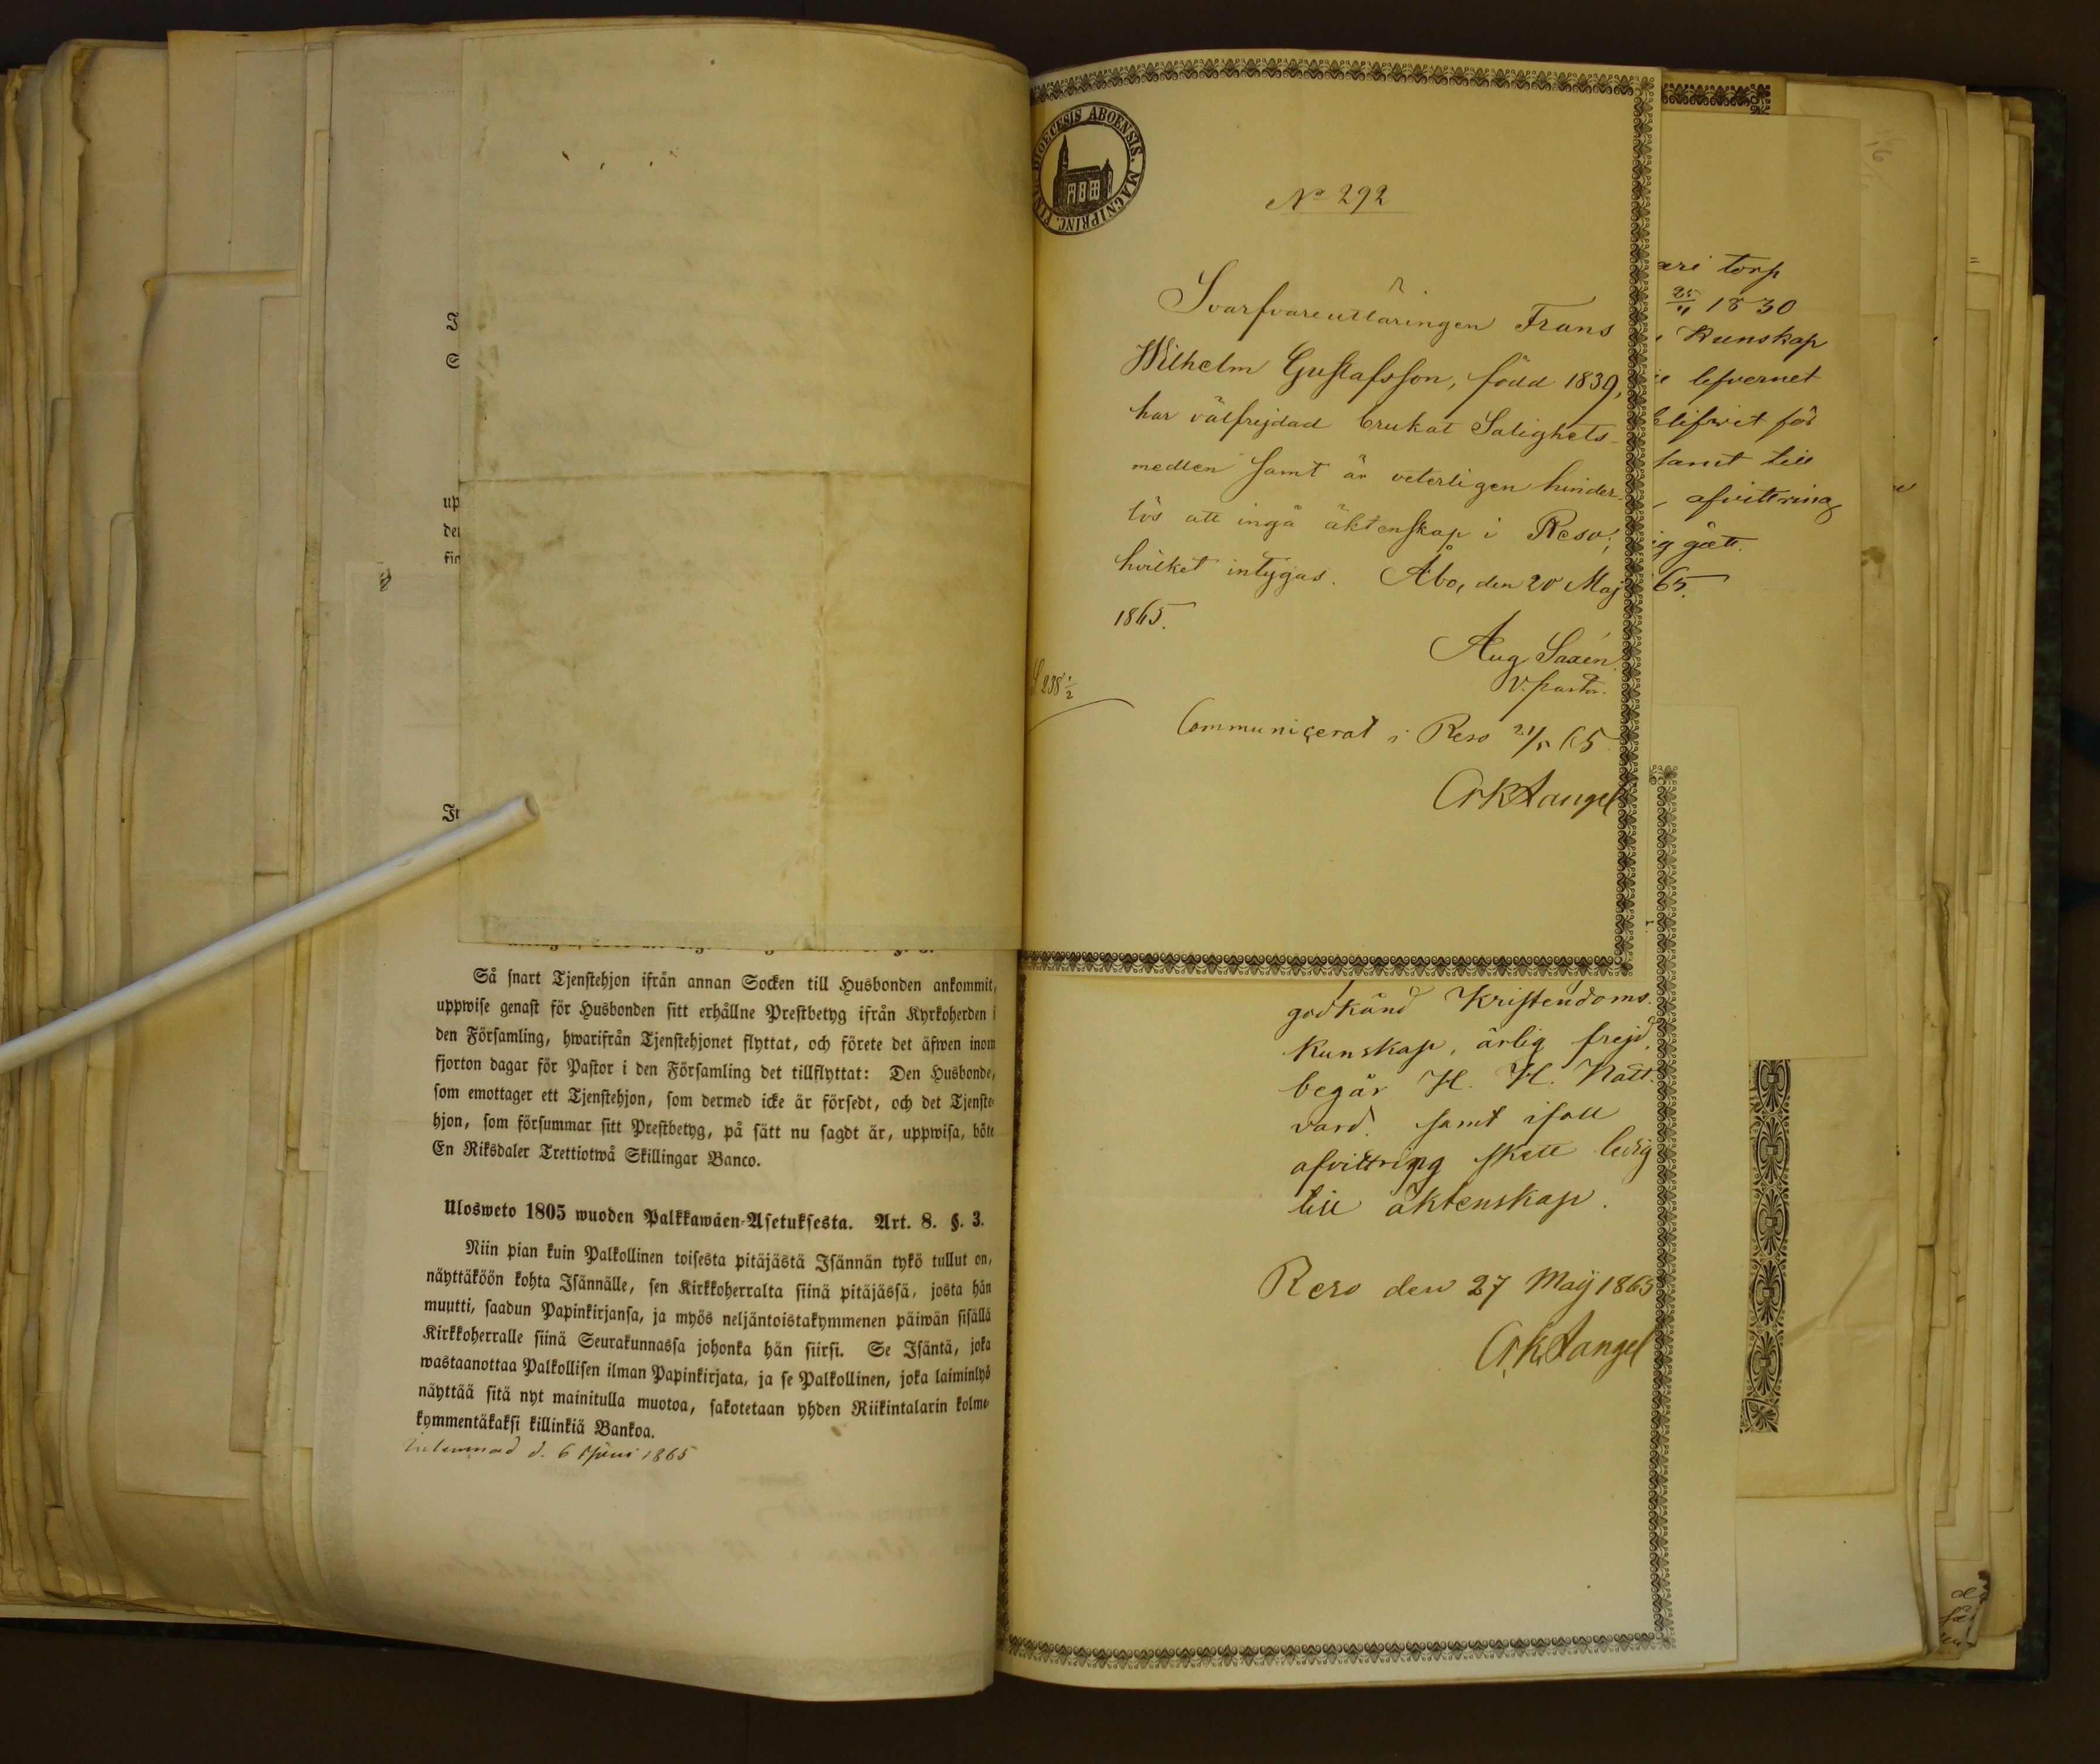 Så snart Tjenstehjon ifrån annan Socken till Husbonden ankommit,
uppwise genast för Husbonden sitt erhållne Prestbetyg ifrån Kyrkoherden i
den Församling, hwarifrån Tjenstehjonet flyttat, och förete det äfwen inom
fjorton dagar för Pastor i den Församling det tillflyttat: Den Husbonde,
som emottager ett Tjenstehjon, som dermed icke är försedt, och det Tjenste-
hjon, som försummar sitt Prestbetyg, på sätt nu sagdt är, uppwisa, böte
En Riksdaler Trettiotwå Skillingar Banco.
Ulosweto 1805 wuoden Palkkawäen-Asetuksesta. Art. 8. §. 3.
Niin pian kuin Palkollinen toisesta pitäjästä Isännän tykö tullut on,
näyttäköön kohta Isännälle, sen Kirkkoherralta siinä pitäjässä, josta hän
muutti, saadun Papinkirjansa, ja myös neljäntoistakymmenen päiwän sisällä
Kirkkoherralle siinä Seurakunnassa johonka hän siirsi. Se Isäntä, joka
wastaanottaa Palkollisen ilman Papinkirjata, ja se Palkollinen, joka laiminlyö
näyttää sitä nyt mainitulla muotoa, sakotetaan yhden Riikintalarin kolme-
kymmentäkaksi killinkiä Bankoa.
Inlemnad d. 6 Juni 1865
DIOECESIS ABOENSIS. MAGNIPRINC.
No 292
Svarfvareutläringen Frans
Wilhelm Gustafsson, född 1839,
har välfrejdad brukat Salighets-
medlen samt är veterligen hinder-
lös att ingå äktenskap i Reso;
hvilket intygas. Åbo, den 20 Maj
1865.
Aug. Saxén
V. pastor.
238 1/2
Communicerat i Reso 21/5 65
torp
25/11 1830
Kunskap
lefvernet
för
samt till
afvittring
gått.
65.
godkänd Kristendoms-
kunskap, ärlig frejd,
begår H. H. Natt-
vard. samt ifall
afvittring skett ledig
till äktenskap.
Reso den 27 Maij 1865